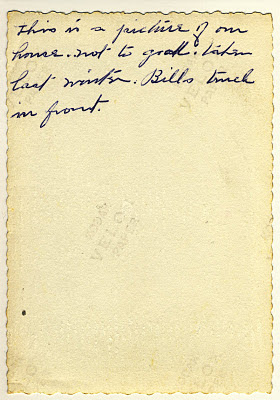 This is a picture of our
house. not to good. taken
last winter. Bills truck
in front.
VELOX
VELOX